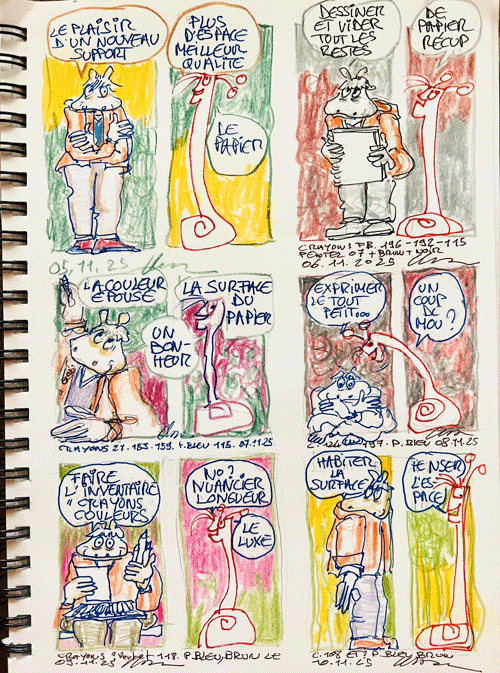 LE PLAISIR
D'UN NOUVEAU
SUPPORT
PLUS
D'ESPACE
MEILLEUR
QUALITÉ
LE
PAPIER
05.11.25
DESSINER
ET VIDER
TOUT LES
RESTES
DE
PAPIER
RÉCUP
CRAYONS F.B. 196-192-115
FEUTRE 07 + BRUN + NOIR
06.11.2025
LA COULEUR
ÉPOUSE
UN
BON-
HEUR
LA SURFACE
DU
PAPIER
CRAYONS 27.153.159. F.BLEU 115. 07.11.25
EXPRIMER
LE TOUT
PETIT...
UN
COUP
DE
MOU?
P. BLEU 08.11.25
FAIRE
L'INVENTAIRE
"CRAYONS
COULEURS
NO?
NUANCIER
LONGUEUR
LE
LUXE
CRAYONS: 118. P.BLEU, BRUN LE
09.11.25
HABITER
LA
SURFACE
PENSER
L'ES-
PACE
C. 108 ET? P. BLEU, BRUN
10.11.25